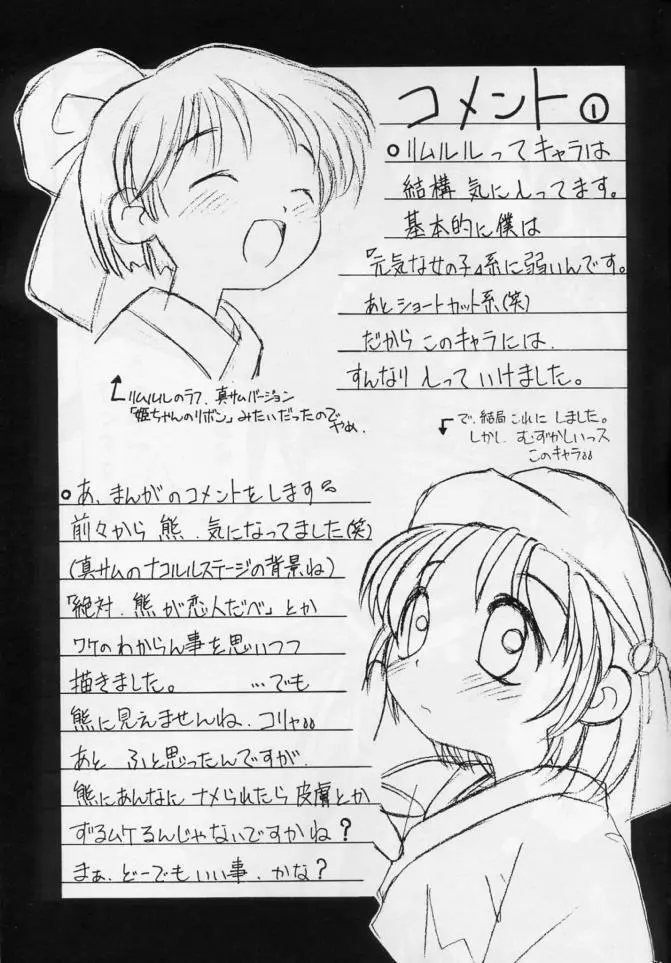 コメント①
○リムルルってキャラは
結構 気に入ってます。
基本的に僕は
『元気な女の子』系に弱いんです。
あと ショートカット系(笑)
だから このキャラには、
すんなり 入って いけました。
リムルルのラフ、真サムバージョン
「姫ちゃんのリボン」みたいだったので
やめ、
で、結局 これに しました。
しかし、むずかしいっス
このキャラ。。
○あ、まんがのコメントをします
前々から 熊、気になってました(笑)
(真サムのナコルルステージの背景ね)
「絶対、熊が恋人だべ」とか
ワケのわからん事を思いつつ
描きました。 …でも
熊に見えませんね、コリャ。。
あと ふと思ったんですが、
熊にあんなに ナメられたら 皮膚とか
ずるムケるんじゃないですかね?
まぁ、どーでもいい事、かな?